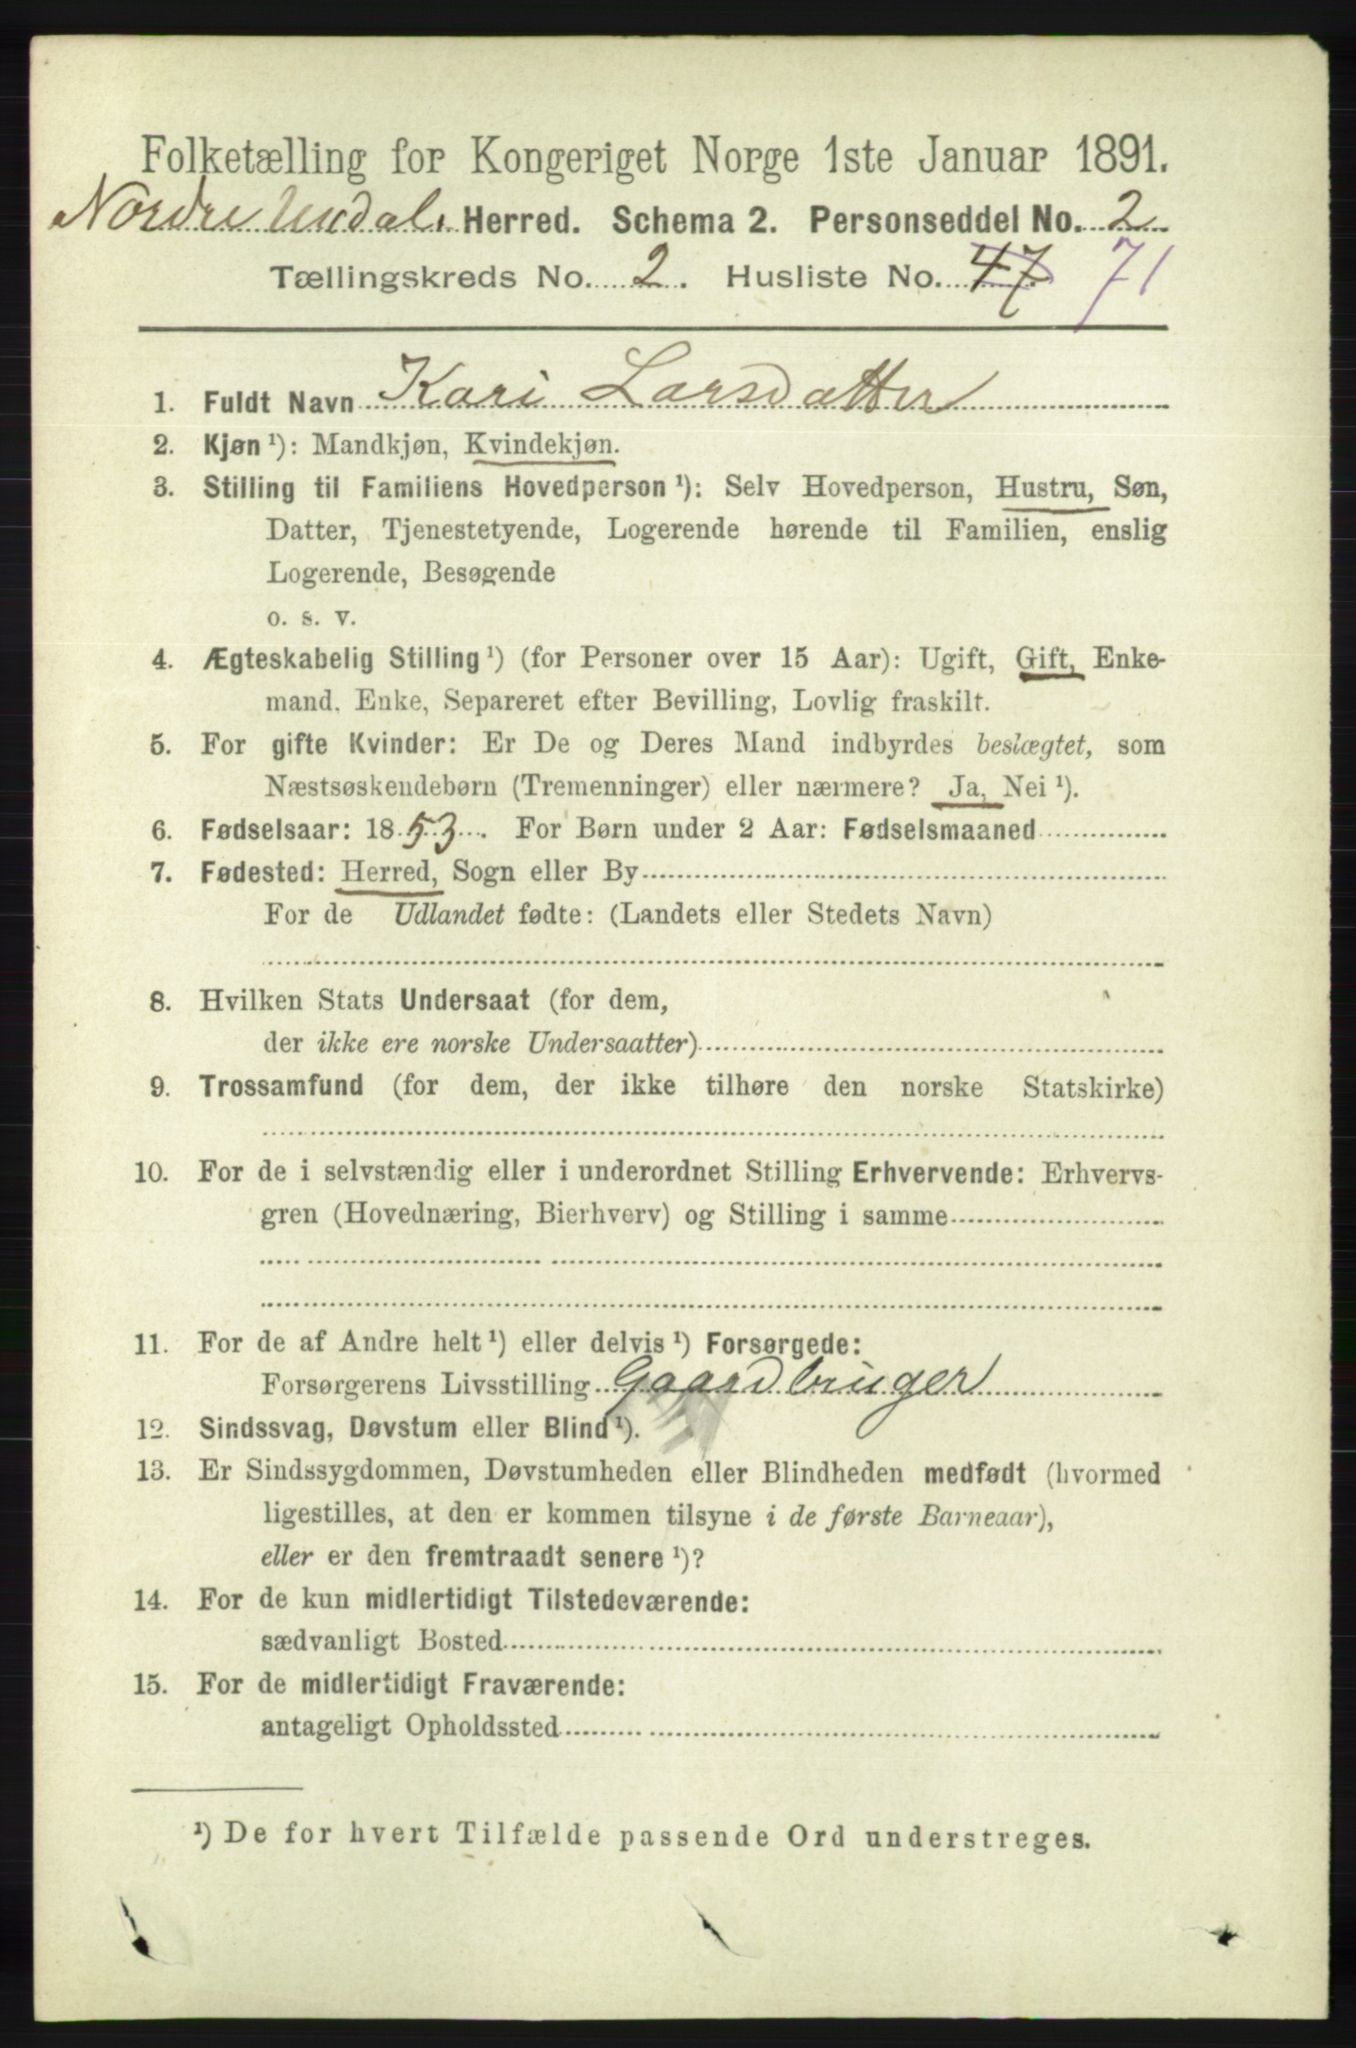 Folketælling for Kongeriget Norge 1ste Januar 1891.
Nordre Undals Herred. Schema 2. Personseddel No. 2
Tællingskreds No. 2. Husliste No. 47 71
1. Fuldt Navn Kari Larsdatter
2. Kjøn ¹): Mandkjøn, Kvindekjøn.
3. Stilling til Familiens Hovedperson ¹): Selv Hovedperson, Hustru, Søn,
Datter, Tjenestetyende, Logerende hørende til Familien, enslig
Logerende, Besøgende
o. s. v.
4. Ægteskabelig Stilling ¹) (for Personer over 15 Aar): Ugift, Gift, Enke-
mand, Enke, Separeret efter Bevilling, Lovlig fraskilt.
5. For gifte Kvinder: Er De og Deres Mand indbyrdes beslægtet, som
Næstsøskendebørn (Tremenninger) eller nærmere? Ja, Nei ¹).
6. Fødselsaar: 1853. For Børn under 2 Aar: Fødselsmaaned
7. Fødested: Herred, Sogn eller By
For de Udlandet fødte: (Landets eller Stedets Navn)
8. Hvilken Stats Undersaat (for dem,
der ikke ere norske Undersaatter)
9. Trossamfund (for dem, der ikke tilhøre den norske Statskirke)
10. For de i selvstændig eller i underordnet Stilling Erhvervende: Erhvervs-
gren (Hovednæring, Bierhverv) og Stilling i samme
11. For de af Andre helt ¹) eller delvis ¹) Forsørgede:
Forsørgerens Livsstilling Gaardbruger
12. Sindssvag, Døvstum eller Blind ¹).
13. Er Sindssygdommen, Døvstumheden eller Blindheden medfødt (hvormed
ligestilles, at den er kommen tilsyne i de første Barneaar),
eller er den fremtraadt senere ¹)?
14. For de kun midlertidigt Tilstedeværende:
sædvanligt Bosted
15. For de midlertidigt Fraværende:
antageligt Opholdssted
¹) De for hvert Tilfælde passende Ord understreges.